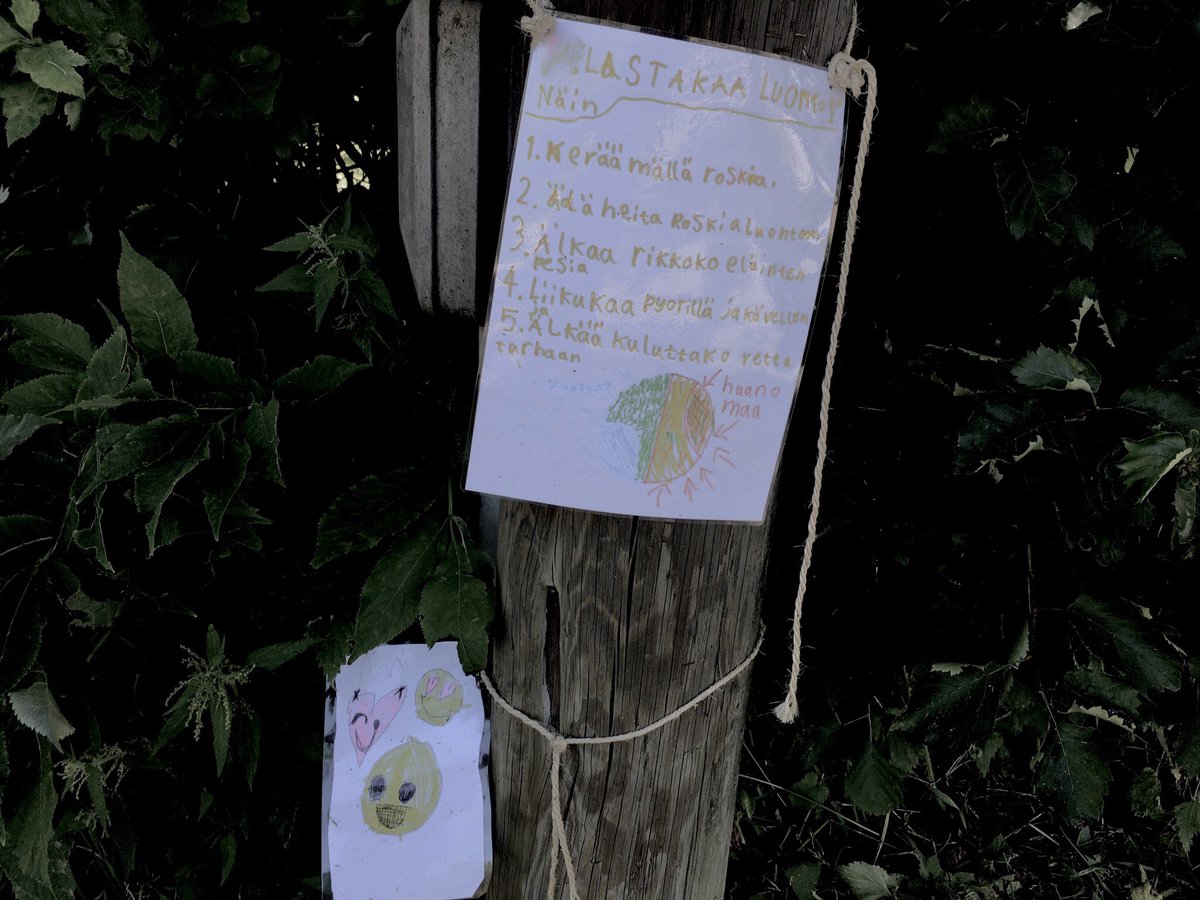 LASTAKAA LUONTO!
Näin
1. Kerää mällä roskia.
2. Älä heitä Roskia luontoon
3. Älkaa rikkoko eläinten
pesia
4. Liikukaa pyorillä ja kävellen
5. Älkää kuluttako vettä
turhaan
huono
maa